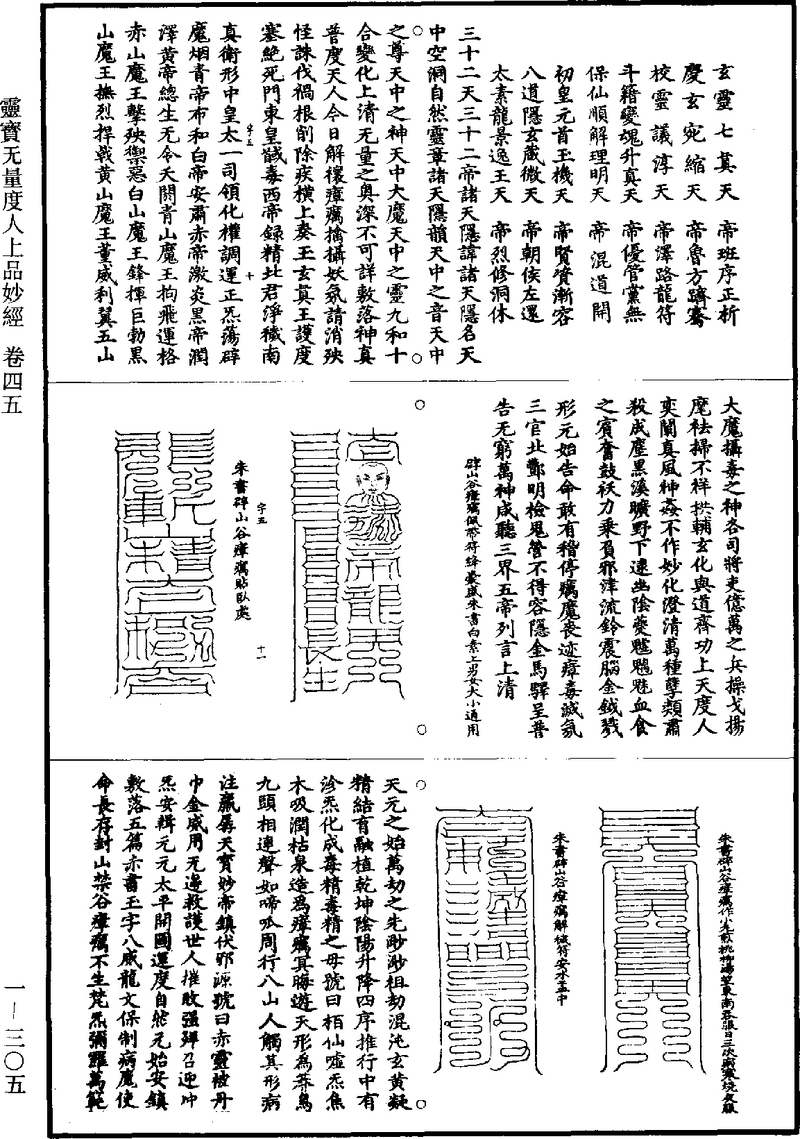 靈寶无量度人上品妙經 卷四五
玄靈七真天 帝班序正析
慶玄宛縮天 帝魯方躋騫
校靈議淳天 帝澤路龍符
斗籍變魂升真天 帝優管黨無
保仙順解理明天 帝混道開
初皇元首玉機天 帝賢資漸容
八道隱玄藏微天 帝朝侯左還
太素龍景逸王天 帝烈修洞休
三十二天三十二帝諸天隱諱諸天隱名天
中空洞自然靈章諸天隱韻天中之音天中
之尊天中之神天中大魔天中之靈九和十
合變化上清无量之奧深不可詳敷落神真
普度天人今日解禳瘴癘擒攝妖氛請消殃
怪誅伐禍根削除疾橫上奏玉玄真王護度
塞絕死門東皇馘毒西帝錄精北君淨穢南
真衛形中皇太一司領化權調運正炁蕩辟
字五 十
魔烟青帝布和白帝安肅赤帝激炎黑帝潤
澤黃帝總生无令夭閼青山魔王拘飛運格
赤山魔王擊殃禦惡白山魔王鋒揮巨勃黑
山魔王撫烈捍戟黃山魔王董威利翼五山
大魔攝毒之神各司將吏億萬之兵操戈揚
麾祛掃不祥拱輔玄化與道齊功上天度人
奕闡真風神姦不作妙化澄清萬種孽類肅
殺成塵黑溪曠野下逮幽陰夔魖魍魅血食
之賓奮鼓袄力乘負邪津流鈴震腦金鉞戮
形元始告命敢有稽停癘魔喪迹瘴毒滅氛
三官北酆明檢鬼營不得容隱金馬驛呈普
告无窮萬神咸聽三界五帝列言上清
辟山谷瘴癘佩帶符絳囊盛朱書白素上男女大小通用
字五 十一
朱書辟山谷瘴癘貼臥處
朱書辟山谷瘴癘解穢符安水盂中
天元之始萬劫之先眇眇祖劫混沌玄黃凝
精結育融植乾坤陰陽升降四序推行中有
沴炁化成毒精毒精之母號曰栢仙噓炁焦
木吸潤枯泉造為瘴癘冥晦遊天形為莽鳥
九頭相連聲如啼呱周行八山人觸其形病
注羸孱天寶妙帝鎮伏邪源號曰赤靈被丹
巾金威用无邊救護世人摧敗强鋒召迎冲
炁安輯元元太平開國運度自然元始安鎮
敷落五篇赤書玉字八威龍文保制病魔使
命長存封山禁谷瘴癘不生梵炁彌羅萬範
一—三〇五